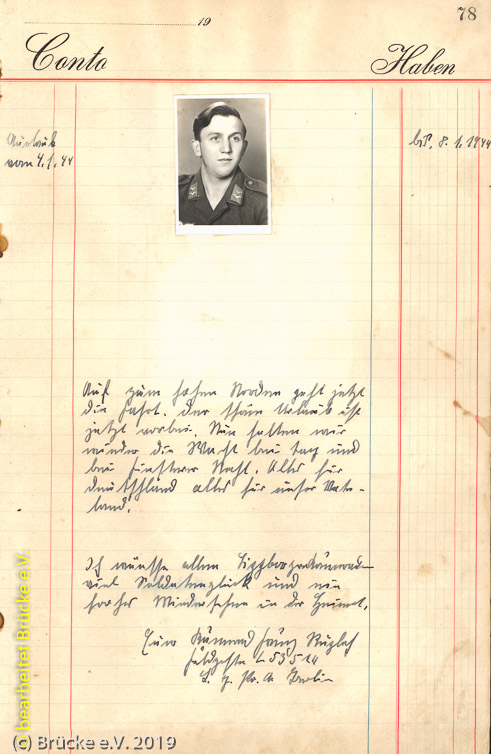 19
78
Conto
Haben
Urlaub
vom 4.1.44
bis. 8. 1. 1944
Auf zum hohen Norden geht jetzt
die Fahrt. Der schöne Urlaub ist
jetzt vorbei. Nun halten wir
wieder die Wacht bei Tag und
bei finsterer Nacht. Alles für
Deutschland alles für unser Vater-
land.
Ich wünsche allen
viel Soldatenglück und ein
frohes Wiedersehen in der Heimat.
Euer Kamerad
Feldpost L 53514
Berlin
© bearbeitet Brücke e.V.
(c) Brücke e.V. 2019